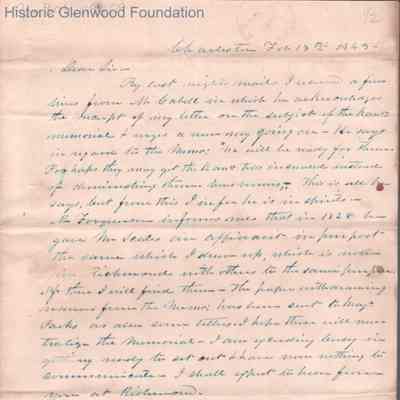 Historic Glenwood Foundation
12
Charleston Feb 13th 1843
Dear Sir
By last nights mails I received a few
lines from Mr Cabell in which he acknowledges
the receipt of my letter on the subject of the
memorial & urges a new my going on - He says
in regard to the Memo; "We will be ready for them
Perhaps they may get the increased instead
of diminishing" This is all he
says, but from this I infer he is in spirits -
Mr informs me that in 1828 he
gave Mr an affidavit in purport
the same which I drew up, which is now
in Richmond with others to the same purpose
I will find them - The paper withdrawing
names from the Memo; has been sent to
Parks as also some letters I hope these will neu-
tralize the Memorial - I am spending busy in
getting ready to set out & have now nothing to
communicate - I shall expect to hear from
you at Richmond.